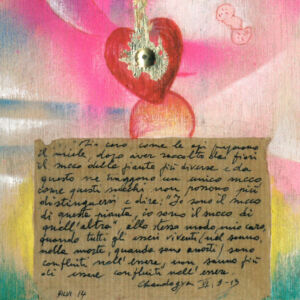 "Mio caro, come le api preparano
il miele dopo aver raccolto dai fiori
il succo delle piante più diverse e da
questo ne traggono un unico succo
come questi succhi non possono più
distinguersi e dire: "Io sono il succo
di questa pianta, io sono il succo di
quell'altra" allo stesso modo mio caro,
quando tutti gli esseri viventi (nel sonno,
nella morte, quando sono morti) sono
confluiti nell'essere, non sanno più
di essere confluiti nell'essere.
Chandogya VI, 9-10